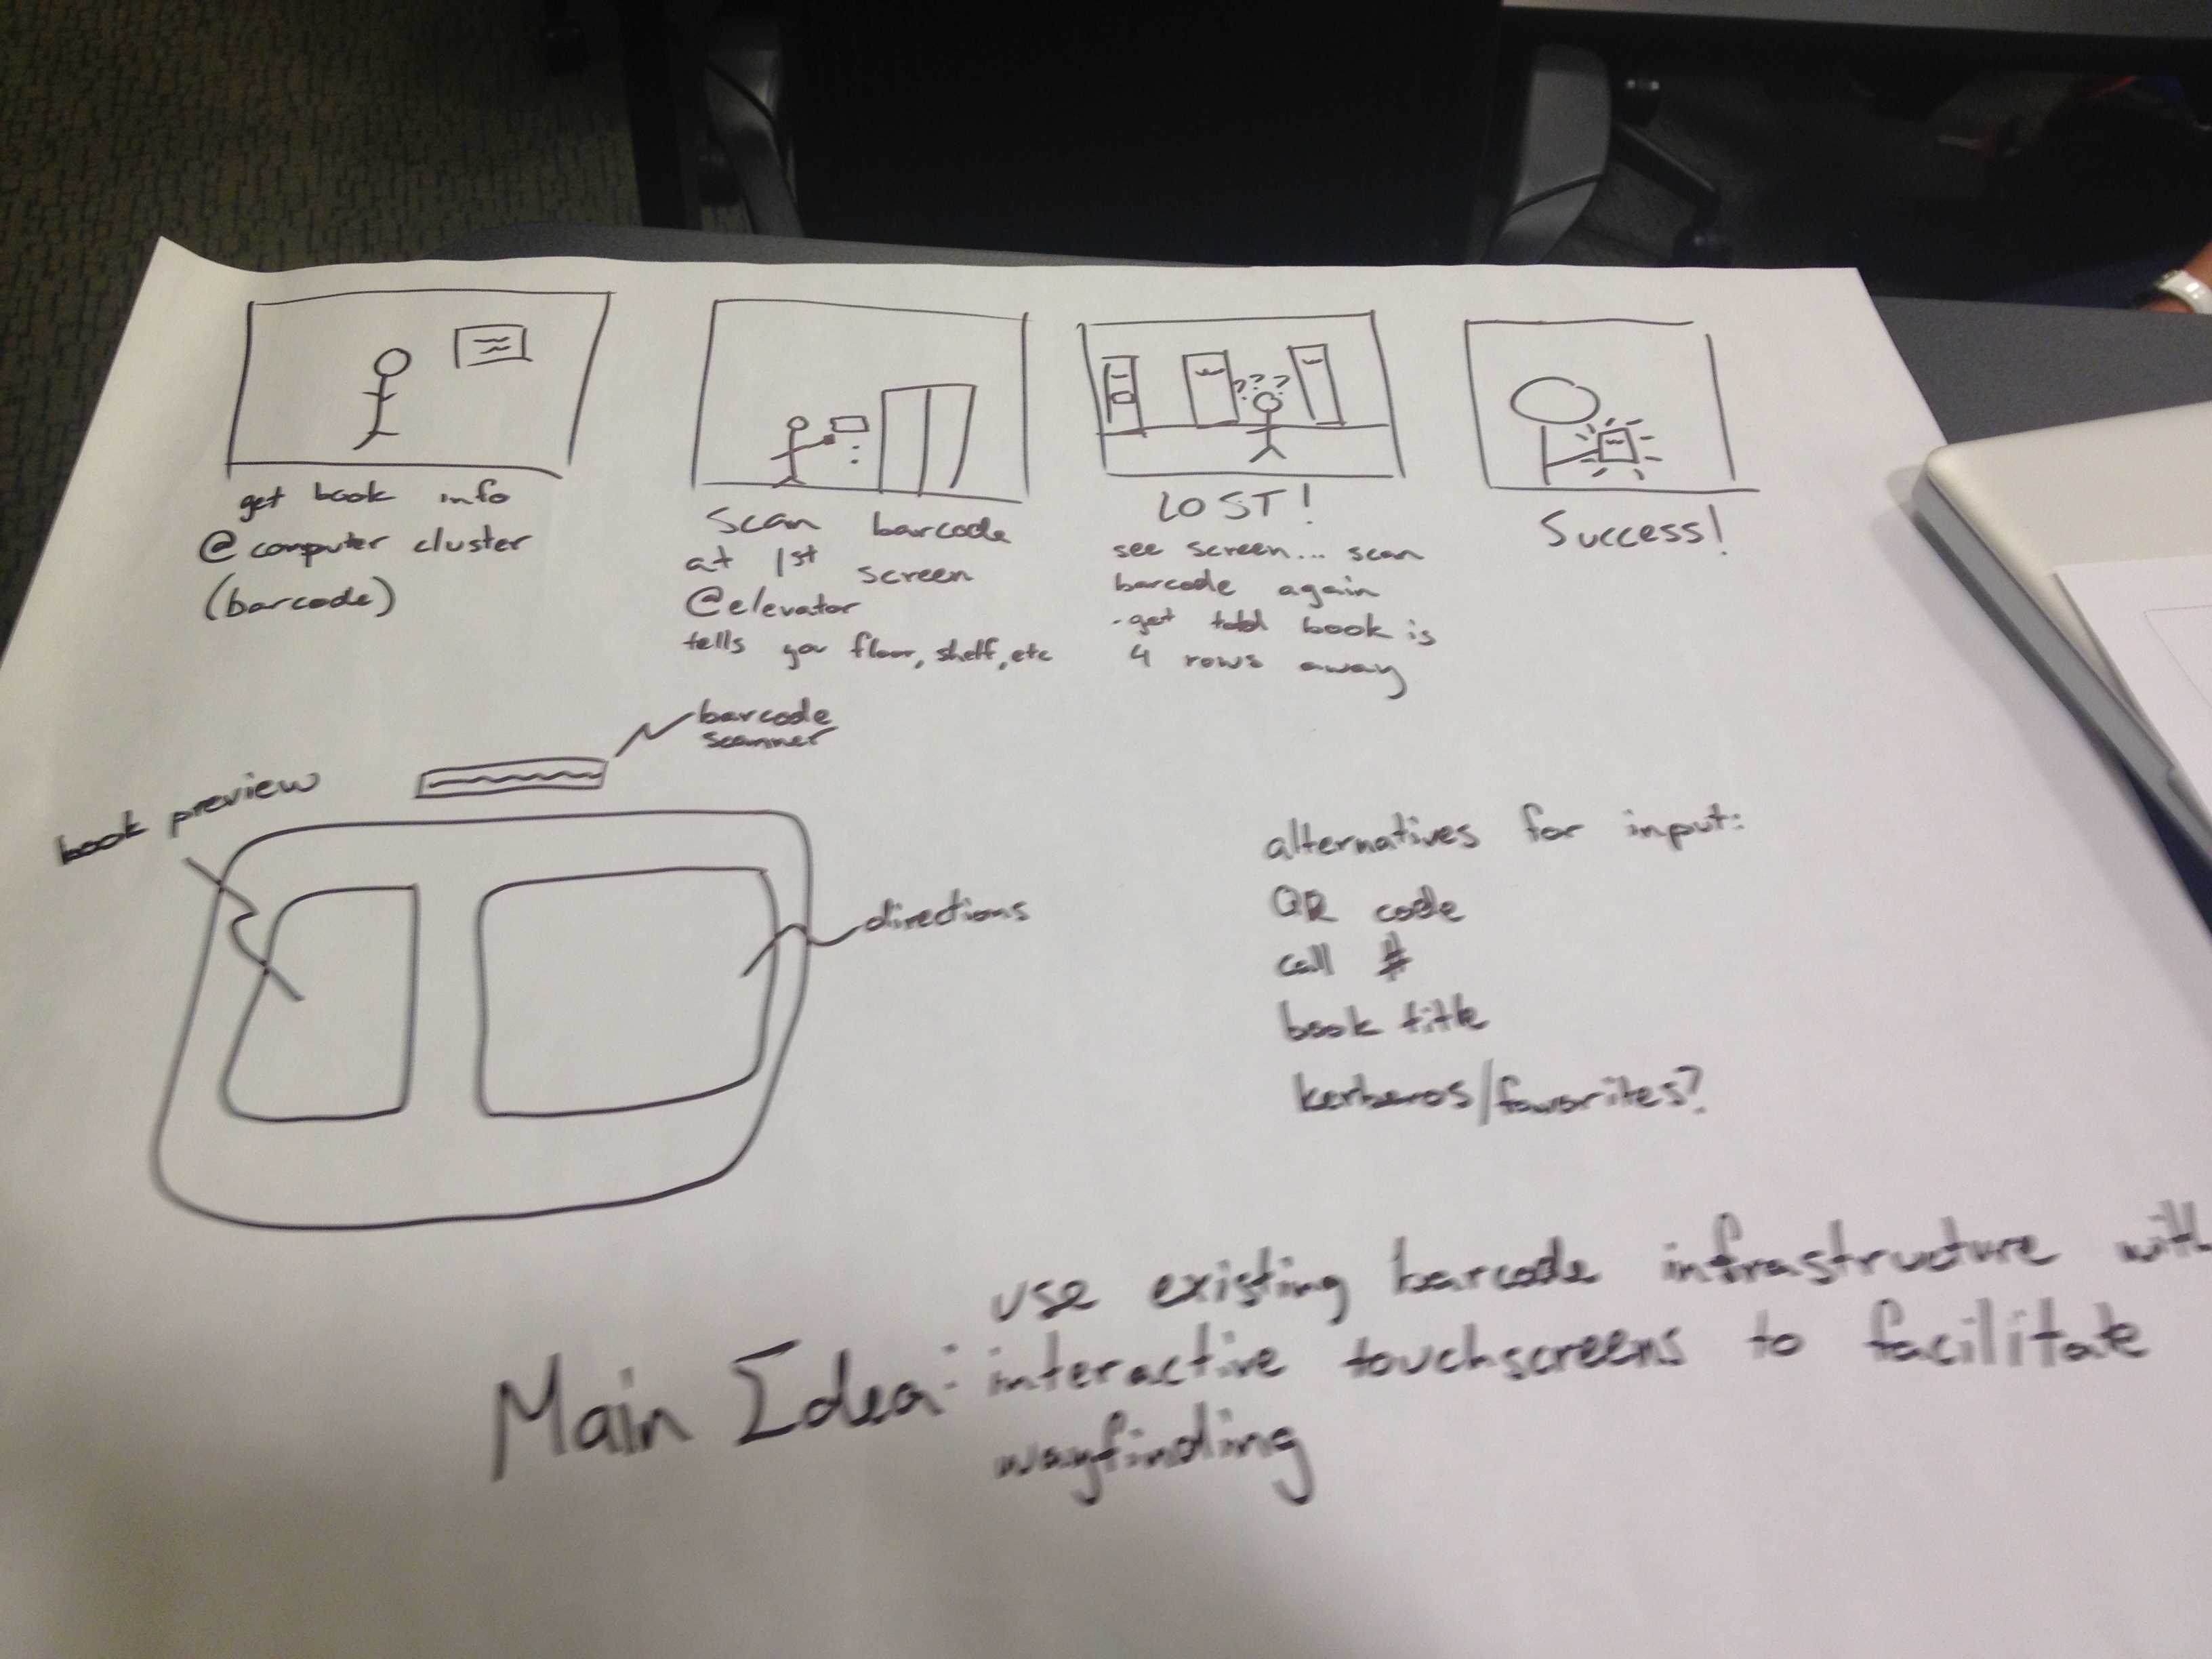 get book info
@ computer cluster
(barcode)
Scan barcode
at 1st screen
@elevator
tells you floor, shelf, etc
???
LOST!
see screen... scan
barcode again
- get told book is
4 rows away
Success!
barcode
scanner
book preview
directions
alternatives for input:
QR code
call #
book title
kerberos/favorites?
Main Idea: use existing barcode infrastructure with
interactive touchscreens to facilitate
wayfinding